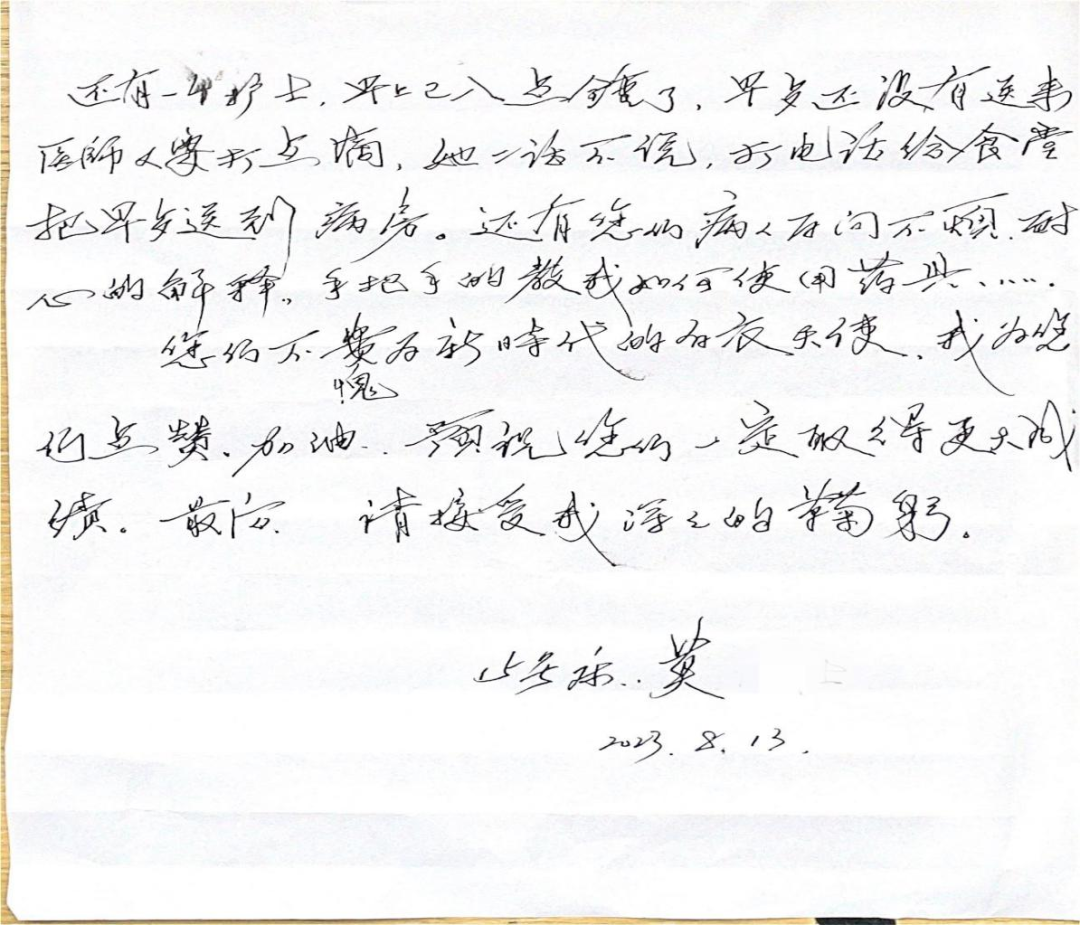 还有一位护士，早上已八点钟了，早点还没有送来
医师又要打点滴，她二话不说，打电话给食堂
把早点送到病房。还有您们病人百问不烦，耐
心的解释。手把手的教我如何使用药具……
您们不愧为新時代的白衣天使，我为您
们点赞、加油，预祝您们一定取得更大成
绩。最后，请接受我深深的鞠躬。
英
2023.8.13.